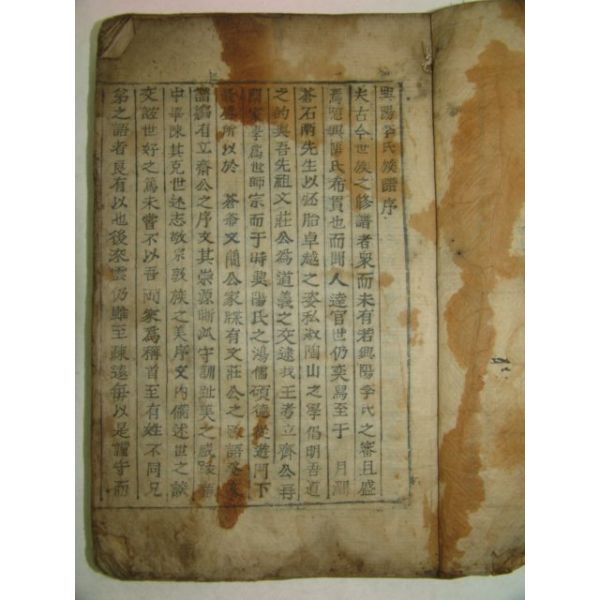 興陽李氏族譜序
夫古今世族之修譜者衆而未有若興陽李氏之審且盛
焉惟興陽氏布貫也而聞人達官世仍奕舃至于 月澗
蒼石兩先生以胚胎卓越之姿私淑陶山之學倡明吾道
之的與吾先祖文莊公為道義之交逮我王考立齊公再
為世師宗而于時興陽氏之鴻儒碩德從遊門下
所以於 蒼石文簡公家牒有文莊公之
譜編有立齋公之序文其崇源派守訓趾美之
中畢陳其克世述志敬宗敦族之美序文內備述世之
交誼世好之篤未嘗不以吾兩家為稱首至有姓不同兄
弟之語者良有以也後來雲仍雖至疎遠每以是講守而